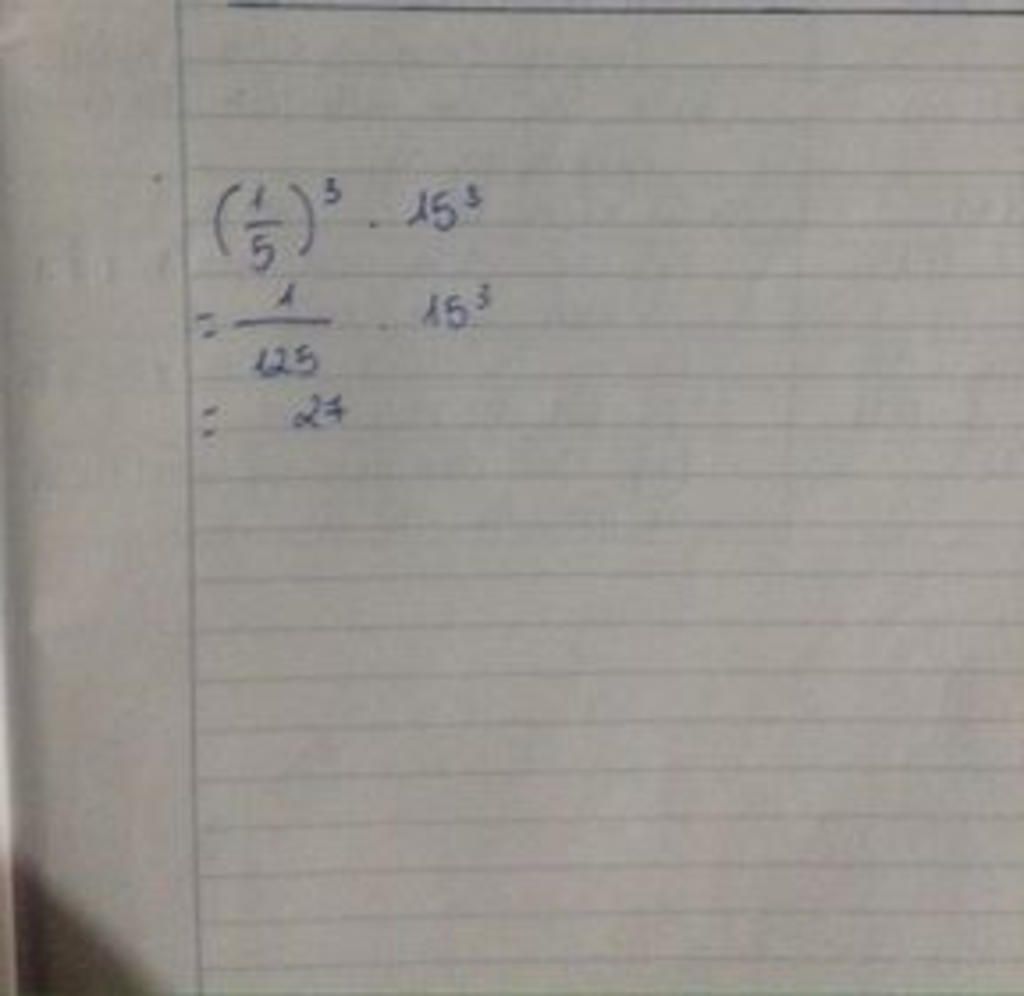 (1/5)³ . 15³
= 1/125 . 15³
= 27